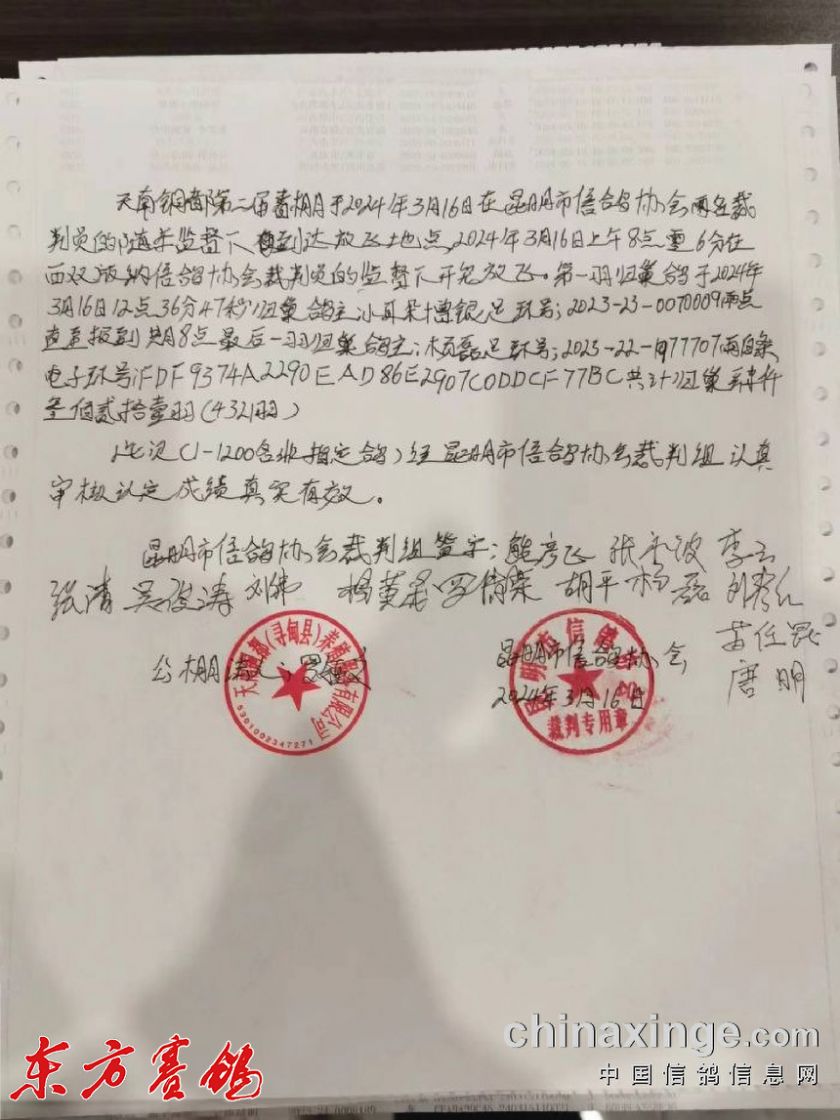 天南铜都第二届春棚于2024年3月16日在昆明市信鸽协会两名裁
判员的随车监督下到达放飞地点,2024年3月16日上午8点零6分在
西双版纳信鸽协会裁判员的监督下开笼放飞。第一羽归巢鸽于2024年
3月16日12点36分47秒归巢鸽主:小耳朵+博银足环号:2023-23-0070009雨点
直至报到 8点最后一羽归巢鸽主:杨磊足环号:2023-22-77707雨白条
电子环号:FDF9374A2290EAD86E2907C0DDCF77BC共计归巢肆仟
叁佰贰拾壹羽(4321羽)
此次(1-1200名 指定鸽)经昆明市信鸽协会裁判组认真
审核认定成绩真实有效。
昆明市信鸽协会裁判组签字:熊彦飞 李云
张清 吴俊涛 刘伟 胡平 杨磊
公棚
昆明市信鸽协会
唐明
2024年3月16日
天南铜都(寻甸县)养殖有限公司
5301002347271
昆明市信鸽协会
裁判专用章
东方赛鸽
chinaxinge.com
中国信鸽信息网